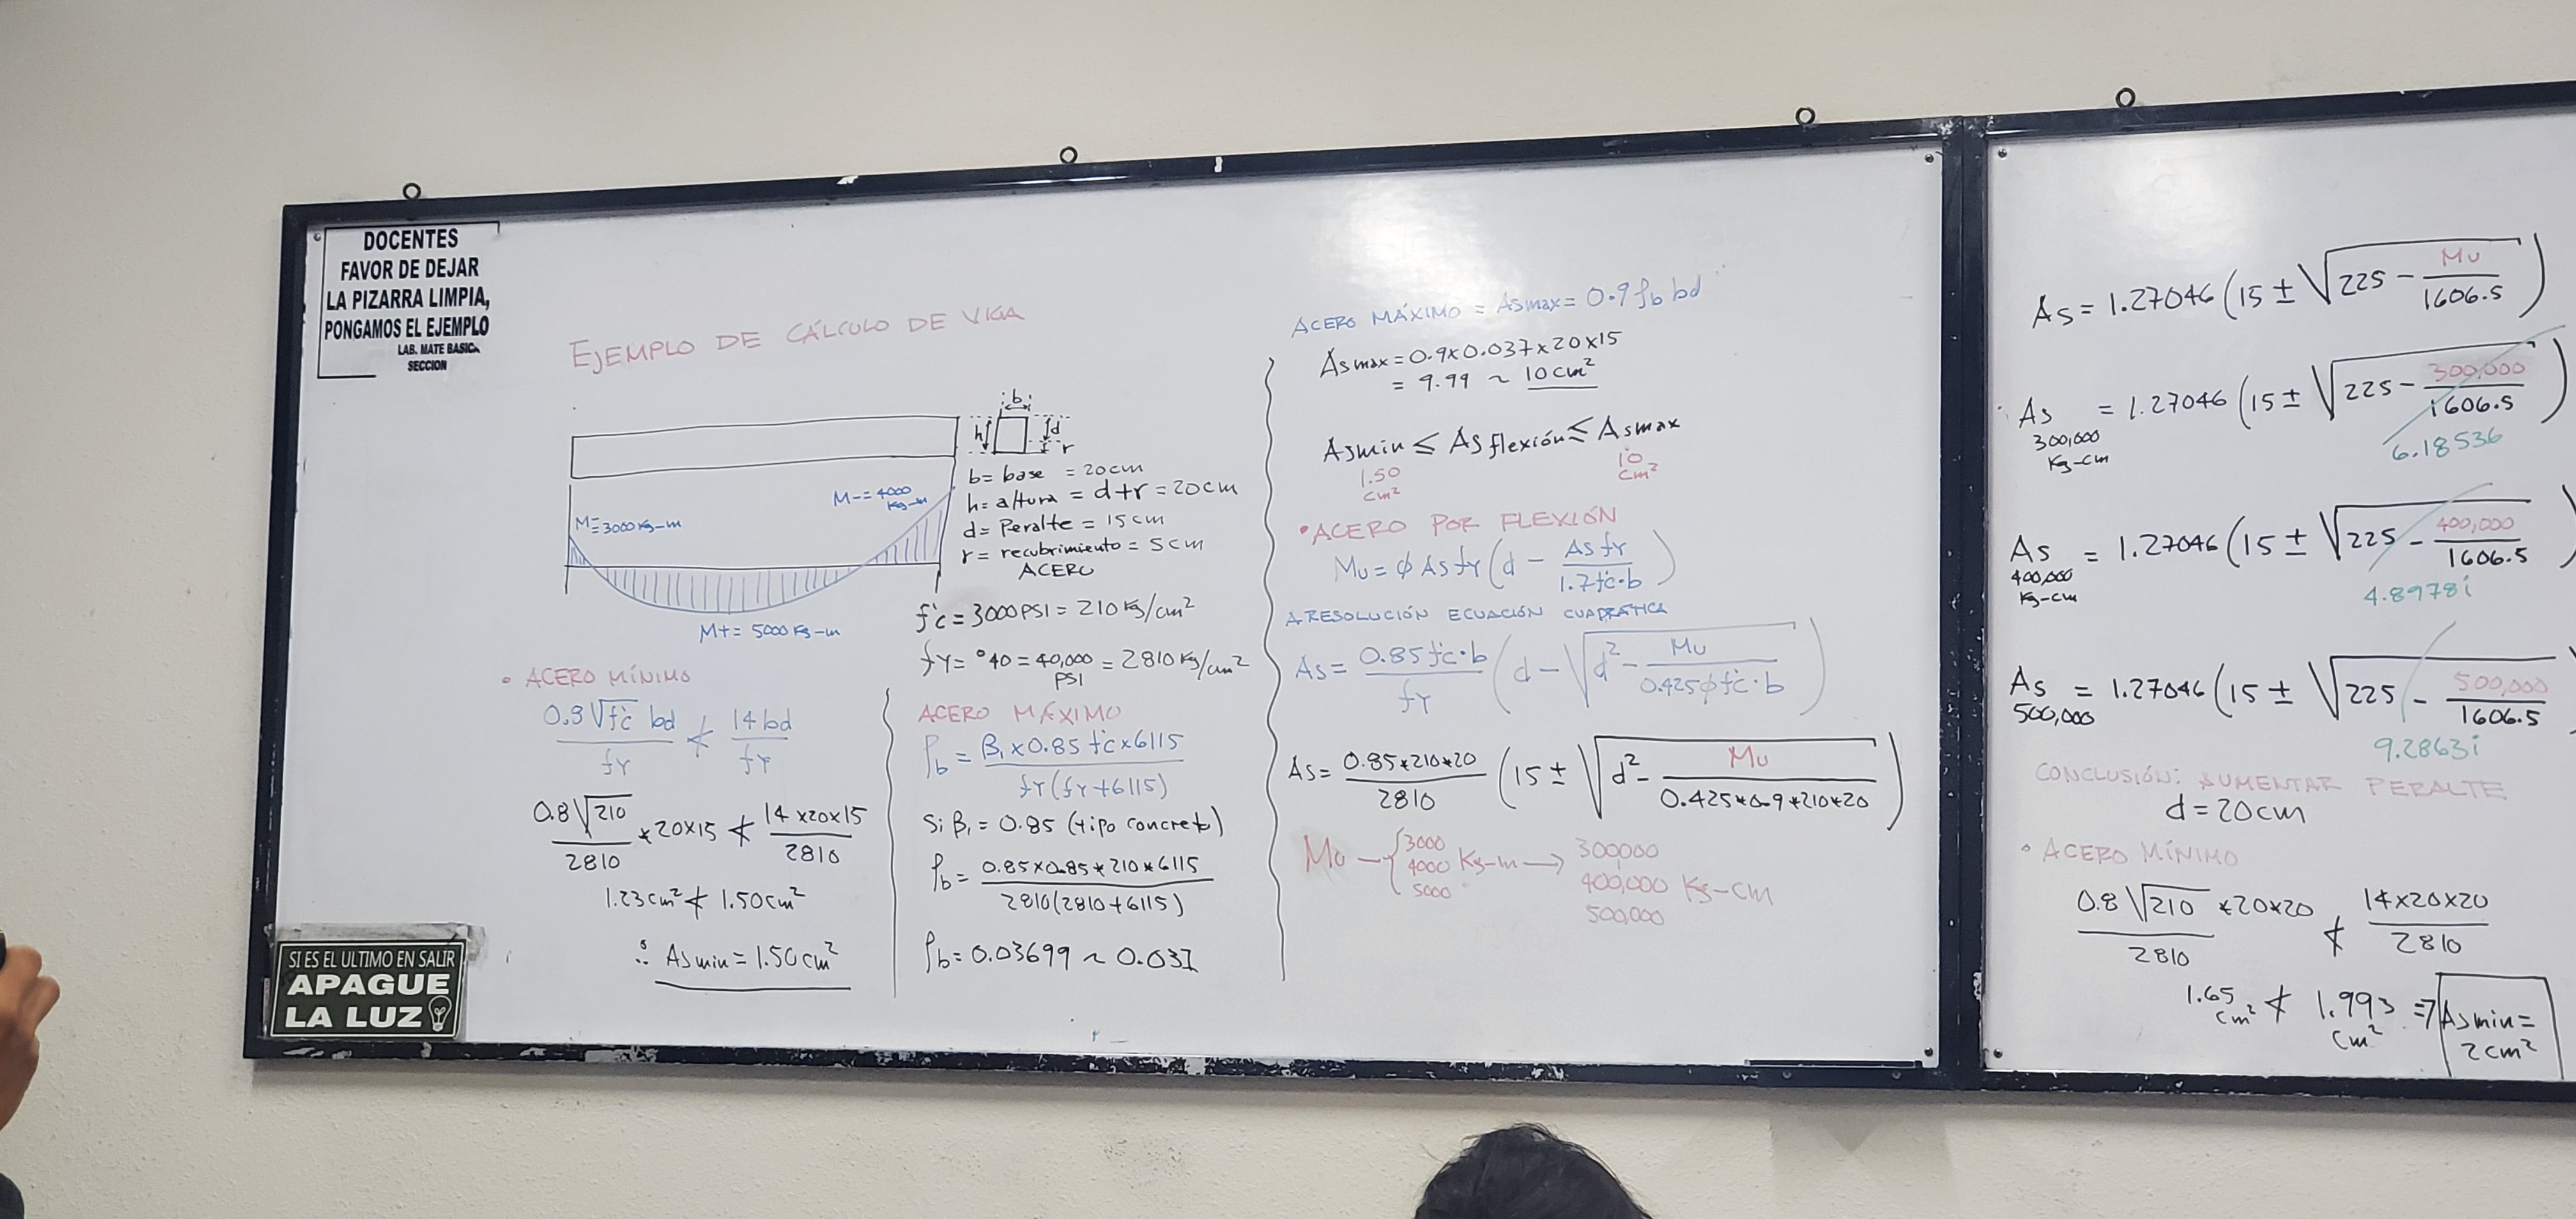 DOCENTES
FAVOR DE DEJAR
LA PIZARRA LIMPIA,
PONGAMOS EL EJEMPLO
LAB. MATE BASICA
SECCION
EJEMPLO DE CÁLCULO DE VIGA
b
h d
r
b = base = 20cm
h = altura = d+r = 20cm
d = Peralte = 15cm
r = recubrimiento = 5cm
ACERO
M-=3000 Kg-m
M-=4000 Kg-m
M+= 5000 Kg-m
f'c = 3000PSI = 210 Kg/cm²
fy = °40 = 40,000 PSI = 2810 Kg/cm²
• ACERO MÍNIMO
0.8√f'c bd / fy ≮ 14bd / fy
0.8√210 / 2810 *20x15 ≮ 14x20x15 / 2810
1.23cm² ≮ 1.50cm²
∴ Asmin = 1.50cm²
ACERO MÁXIMO
ρb = β1 x 0.85 f'c x 6115 / fy (fy+6115)
Si β1 = 0.85 (tipo concreto)
ρb = 0.85x0.85*210*6115 / 2810(2810+6115)
ρb = 0.03699 ~ 0.037
ACERO MÁXIMO = Asmax = 0.9 ρb bd
Asmax = 0.9x0.037x20x15
= 9.99 ~ 10cm²
Asmin ≤ As flexión ≤ Asmax
1.50 cm² 10 cm²
• ACERO POR FLEXIÓN
Mu = φ As fy (d - As fy / 1.7 f'c·b)
RESOLUCIÓN ECUACIÓN CUADRÁTICA
As = 0.85 f'c·b / fy (d - √(d² - Mu / 0.425φf'c·b))
As = 0.85*210*20 / 2810 (15 ± √(d² - Mu / 0.425*0.9*210*20))
Mu - { 3000 4000 5000 Kg-m → 300,000 400,000 500,000 Kg-cm
As = 1.27046 (15 ± √(225 - Mu / 1606.5))
As 300,000 Kg-cm = 1.27046 (15 ± √(225 - 300,000 / 1606.5))
6.18536
As 400,000 Kg-cm = 1.27046 (15 ± √(225 - 400,000 / 1606.5))
4.8978i
As 500,000 = 1.27046 (15 ± √(225 - 500,000 / 1606.5))
9.2863i
CONCLUSIÓN: AUMENTAR PERALTE
d = 20cm
• ACERO MÍNIMO
0.8√210 / 2810 *20*20 ≮ 14x20x20 / 2810
1.65 cm² ≮ 1.993 cm² ⇒ Asmin = 2cm²
SI ES EL ULTIMO EN SALIR
APAGUE
LA LUZ